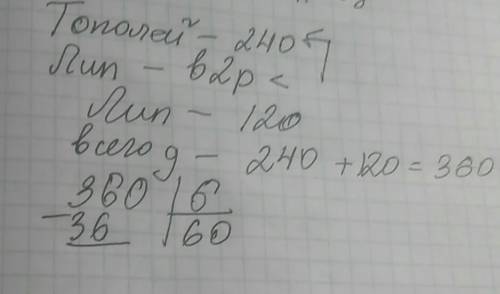 Тополей - 240
Лип - в 2р <
Лип - 120
всего д - 240 + 120 = 360
360 | 6
- 36 | 60